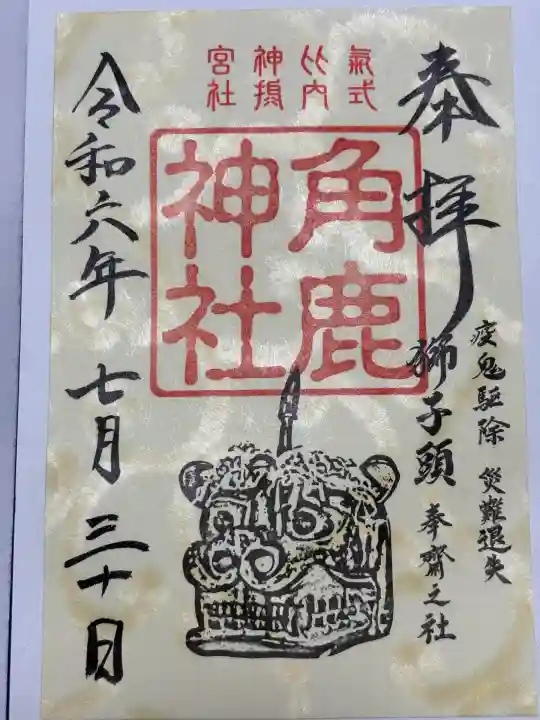 奉拝
疫鬼駆除 災難退失
獅子頭 奉齋之社
式内
氣比神宮
摂社
角鹿
神社
令和六年 七月 三十日